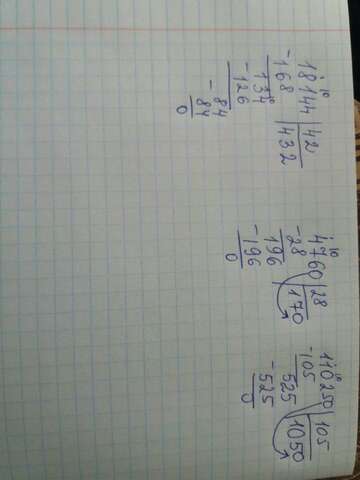 18144 | 42
-168 | 432
134
-126
84
-84
0
4760 | 28
-28 | 170
196
-196
0
110250 | 105
-105 | 1050
525
-525
0